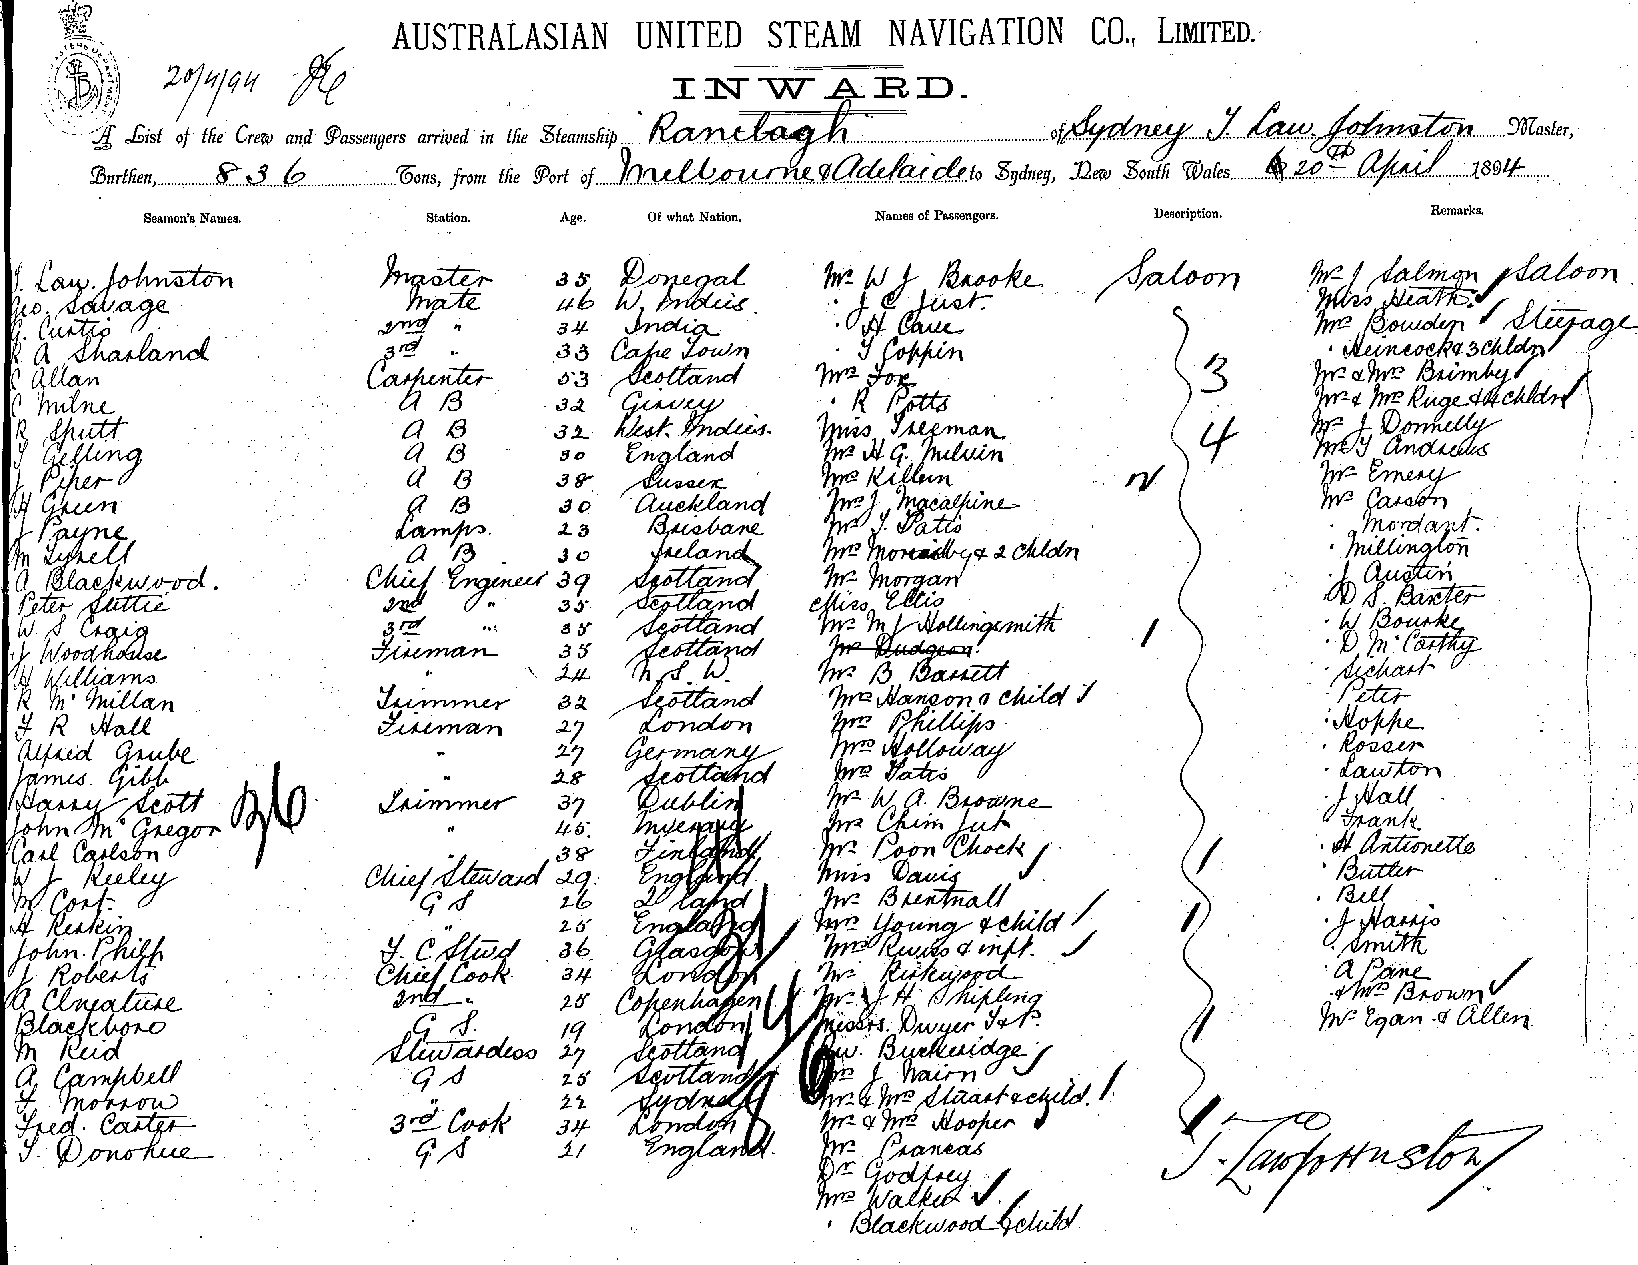 AUSTRALASIAN UNITED STEAM NAVIGATION CO., LIMITED.
20/4/94
INWARD.
A List of the Crew and Passengers arrived in the Steamship Ranelagh of Sydney T Law. Johnston Master,
Burthen, 836 Tons, from the Port of Melbourne & Adelaide to Sydney, New South Wales 20th April 1894
Seamen's Names. Station. Age. Of what Nation. Names of Passengers. Description. Remarks.
T. Law. Johnston Master 35 Donegal Mr W J Brooke Saloon Mr J Salmon Saloon
Geo. Savage Mate 46 W. Indies " J C Just. Miss Heath.
G. Curtis 2nd " 34 India " H Cave Mrs Bowden Steerage
R A Sharland 3rd " 33 Cape Town " T Coppin " Heincock & 3 chldn
C Allan Carpenter 53 Scotland Mrs Fox 3 Mr & Mrs Brimby
C Milne A B 32 " R Potts Mr & Mrs Ruge & 4 chldn
R Sputt A B 32 West. Indies. Miss Freeman 4 Mr J Donnelly
T Gelling A B 30 England Mr H G. Melvin Mr T Andrews
J Piper A B 38 Sussex Mrs Killen Mr Emery
H Green A B 30 Auckland Mr J Macalpine Mr Carson
J Payne Lamps. 23 Brisbane Mr J. Patis " Mordant.
M Tyrell A B 30 Ireland Mrs & 2 chldn " Millington
A Blackwood. Chief Engineer 39 Scotland Mr Morgan " J Austin
Peter Suttie 2nd " 35 Scotland Miss Ellis " D S. Baxter
W S Craig 3rd " 35 Scotland Mr M J Hollingsmith 1 " W Bourke
J Woodhouse Fireman 35 Scotland Mr Dudgeon. " D McCarthy
H Williams " 24 N. S. W. Mr B Barrett " Sichart
R McMillan Trimmer 32 Scotland Mrs Hanson & child 1 " Peter
F R Hall Fireman 27 London Mrs Phillips " Hoppe
Alfred Grube " 27 Germany Mrs Holloway " Rosser
James Gibb " 28 Scotland Mrs Patis " Lawton
Harry Scott 36 Trimmer 37 Dublin Mr W A. Browne " J Hall
John McGregor " 45. Inverary Mr Chim Jut " Frank
Carl Carlson " 38 Finland Mr Poon Chock 1 " H Antionette
W J Keeley Chief Steward 29 England Miss Davis " Butler
M Cort. G S 26 Mr Brentnall " Bell
H Reskin " 25 England Mrs Young & child 1 " J Harris
John Philp F. C Stwd 36 Glasgow Mrs & inft. " Smith
J Roberts Chief Cook 34 London Mr Kirkwood " A Pane
A Clneature 2nd " 25 Copenhagen Mr J H. Shipling " & Mrs Brown
Blackboro G S. 19 London Messrs. Dwyer T & P. 1 Mr Egan & Allen
M Reid Stewardess 27 Scotland Rev. Buckeridge
A Campbell G S 25 Scotland Mrs J Nairn
F Morrow " 22 Sydney Mr & Mrs Stuart & child.
Fred. Carter 3rd Cook 34 London Mr & Mrs Hooper
T. Donohue G S 21 England. Mr Praneas
T. Law Johnston
Dr Godfrey
Mrs Walker
" Blackwood & child